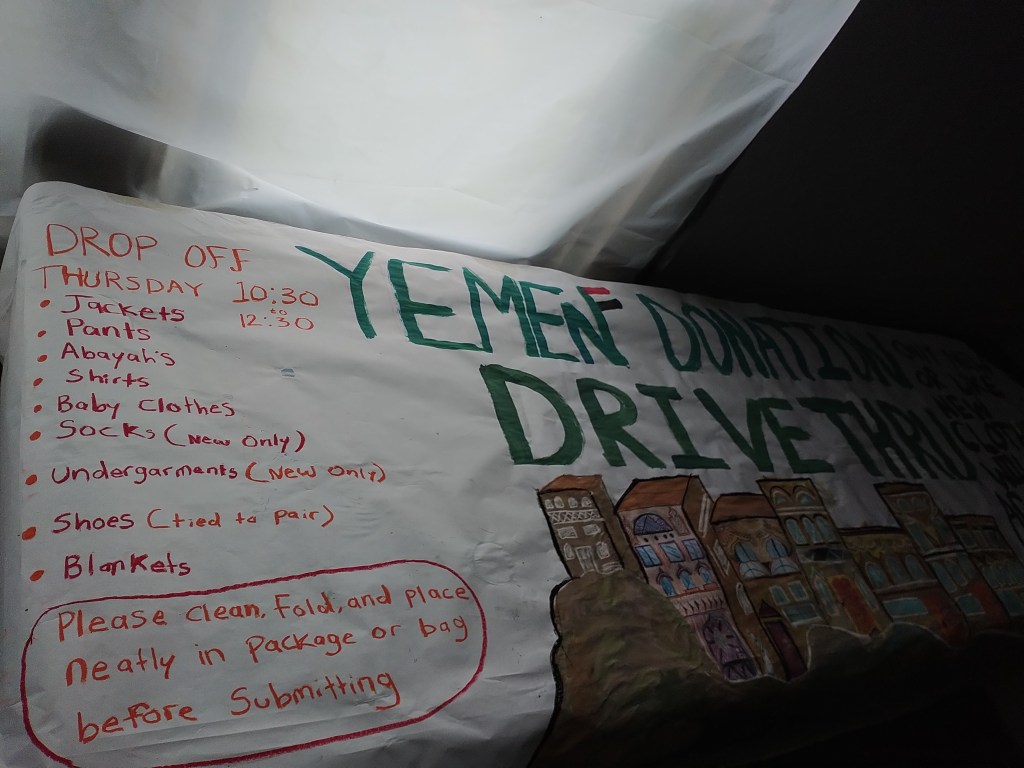 DROP OFF
THURSDAY 10:30
to
12:30
• Jackets
• Pants
• Abayah's
• Shirts
• Baby Clothes
• Socks (New Only)
• Undergarments (New Only)
• Shoes (tied to pair)
• Blankets
Please clean, Fold, and place
neatly in package or bag
before Submitting
YEMEN DONATION
DRIVE THRU
NEW